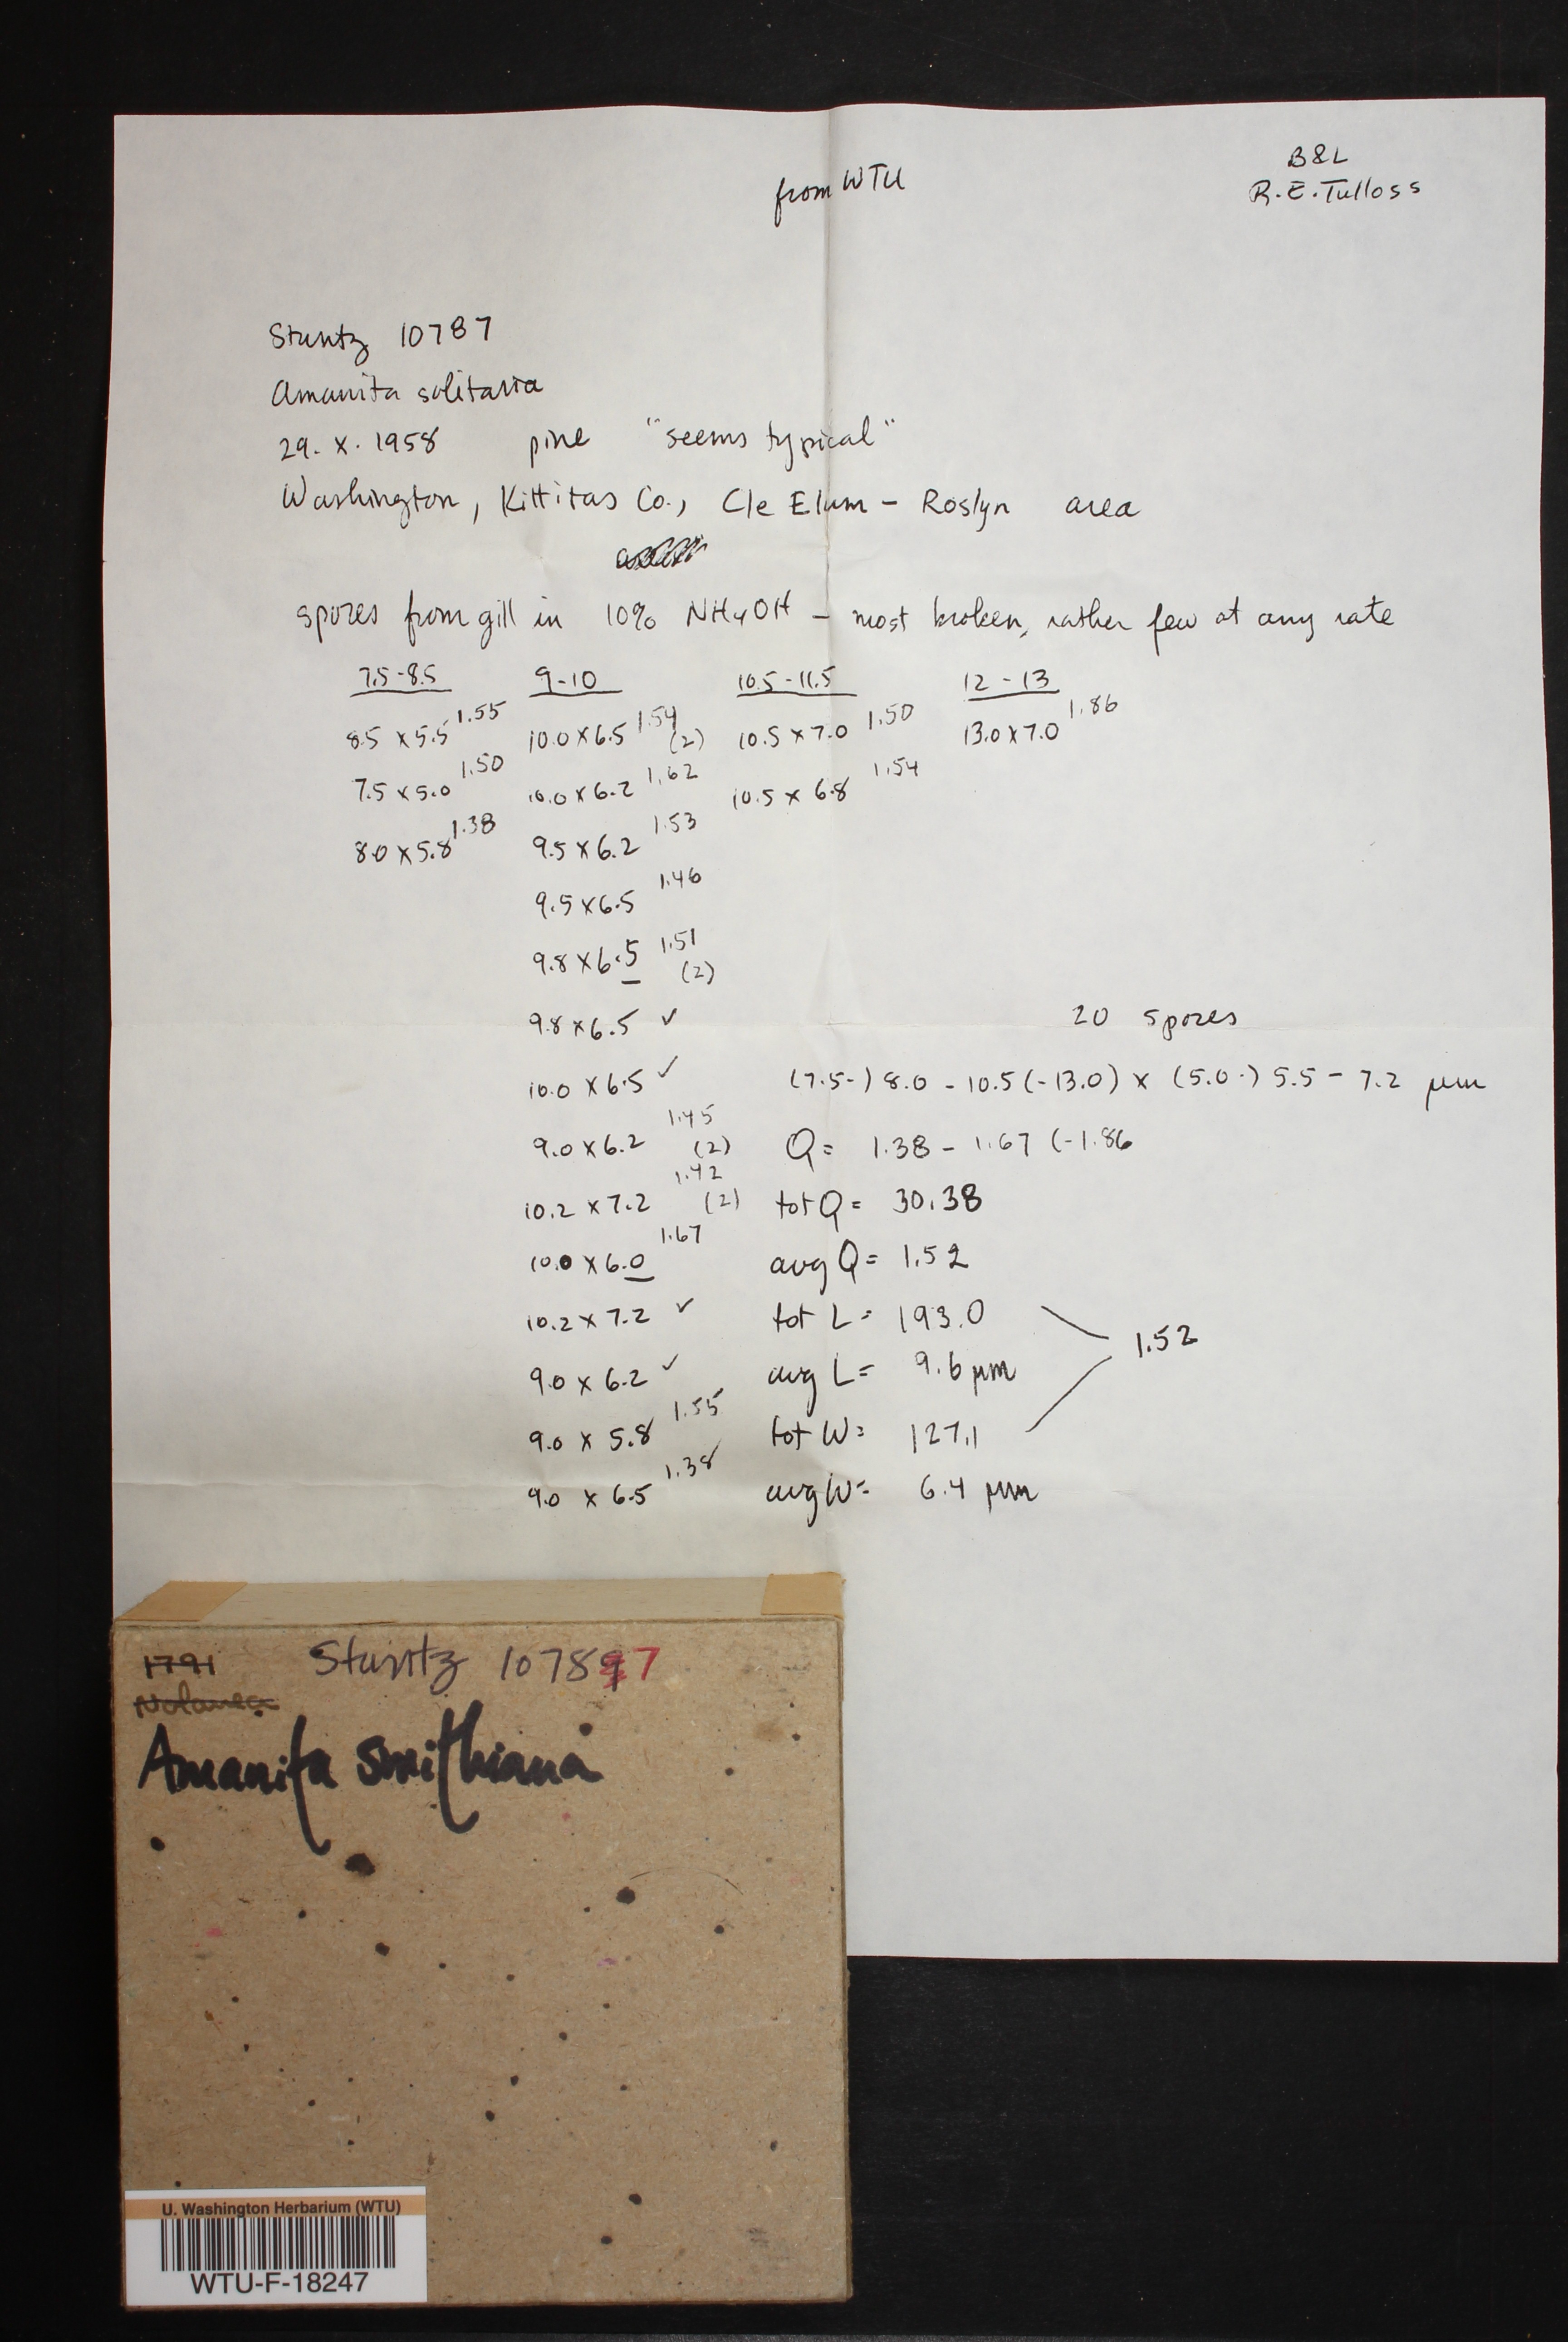 from WTU
B&L
R.E. Tulloss
Stuntz 10787
Amanita solitaria
29. X. 1958 pine "seems typical"
Washington, Kittitas Co., Cle Elum - Roslyn area
spores from gill in 10% NH4OH - most broken, rather few at any rate
7.5-8.5 9-10 10.5-11.5 12-13
8.5 x 5.5 1.55 10.0 x 6.5 1.54 (2) 10.5 x 7.0 1.50 13.0 x 7.0 1.86
7.5 x 5.0 1.50 10.0 x 6.2 1.62 10.5 x 6.8 1.54
8.0 x 5.8 1.38 9.5 x 6.2 1.53
9.5 x 6.5 1.46
9.8 x 6.5 1.51 (2)
9.8 x 6.5 ✓ 20 spores
10.0 x 6.5 ✓ (7.5-) 8.0 - 10.5 (-13.0) x (5.0-) 5.5 - 7.2 µm
9.0 x 6.2 1.45 (2) Q = 1.38 - 1.67 (-1.86
10.2 x 7.2 1.42 (2) tot Q = 30.38
10.0 x 6.0 1.67 avg Q = 1.52
10.2 x 7.2 ✓ tot L = 193.0 1.52
9.0 x 6.2 ✓ avg L = 9.6 µm
9.0 x 5.8 1.55 tot W = 127.1
9.0 x 6.5 1.38 avg W = 6.4 µm
1791 Stuntz 107897
Nolanea
Amanita smithiana
U. Washington Herbarium (WTU)
WTU-F-18247